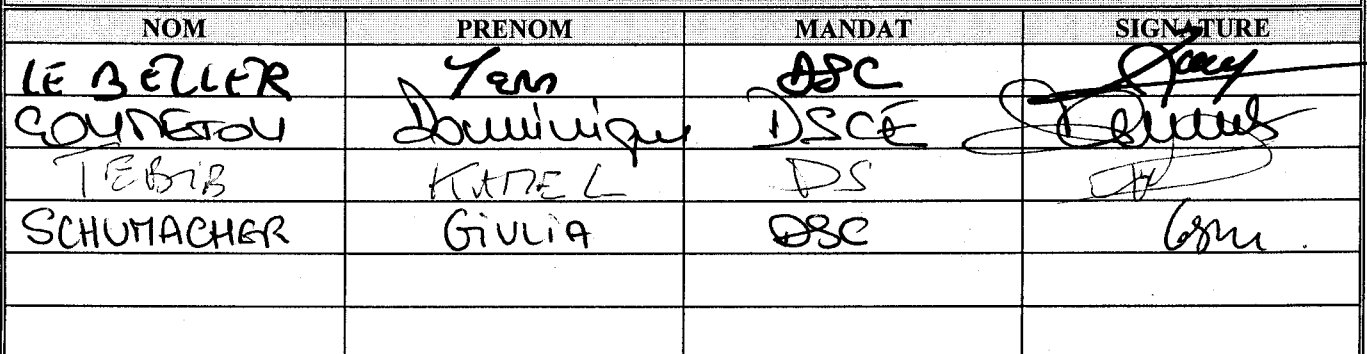 NOM PRENOM MANDAT SIGNATURE
LE BELLER Yann DSC
Dominique DSCE
TEBIB KAMEL DS
SCHUMACHER GIULIA DSC